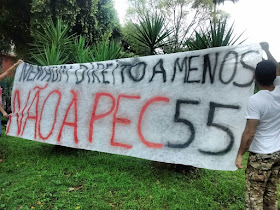 NENHUM DIREITO A MENOS
NÃO A PEC 55